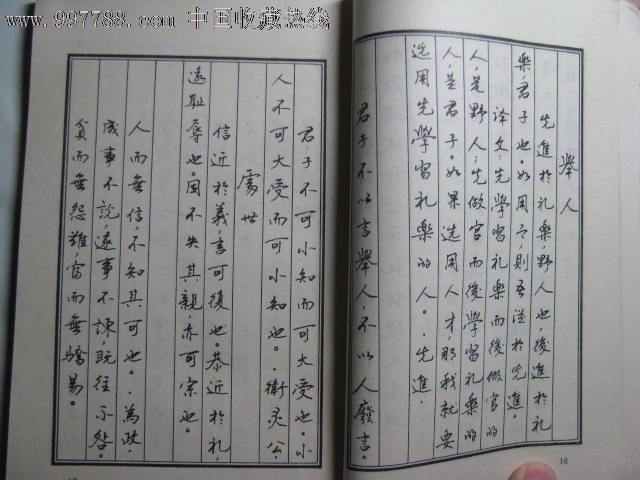 www.997788.com 中国收藏热线
舉人
先進於礼樂野人也，後進於礼
樂，君子也。如用之，則吾從於先進。
译文：先學習礼樂而後做官的
人是野人；先做官而後學習礼樂的
人，是君子。如果选用人才，那我就要
选用先學習礼樂的人。·先進·
君子不以言舉人，不以人廢言。
16
君子不可小知而可大受也。小
人不可大受而可小知也。·衛灵公·
處世
信近於義，言可復也。恭近於礼，
遠恥辱也。因不失其親，亦可宗也。
人而無信，不知其可也。·為政·
成事不說，遂事不諫，既往不咎。
貧而無怨難，富而無驕易。